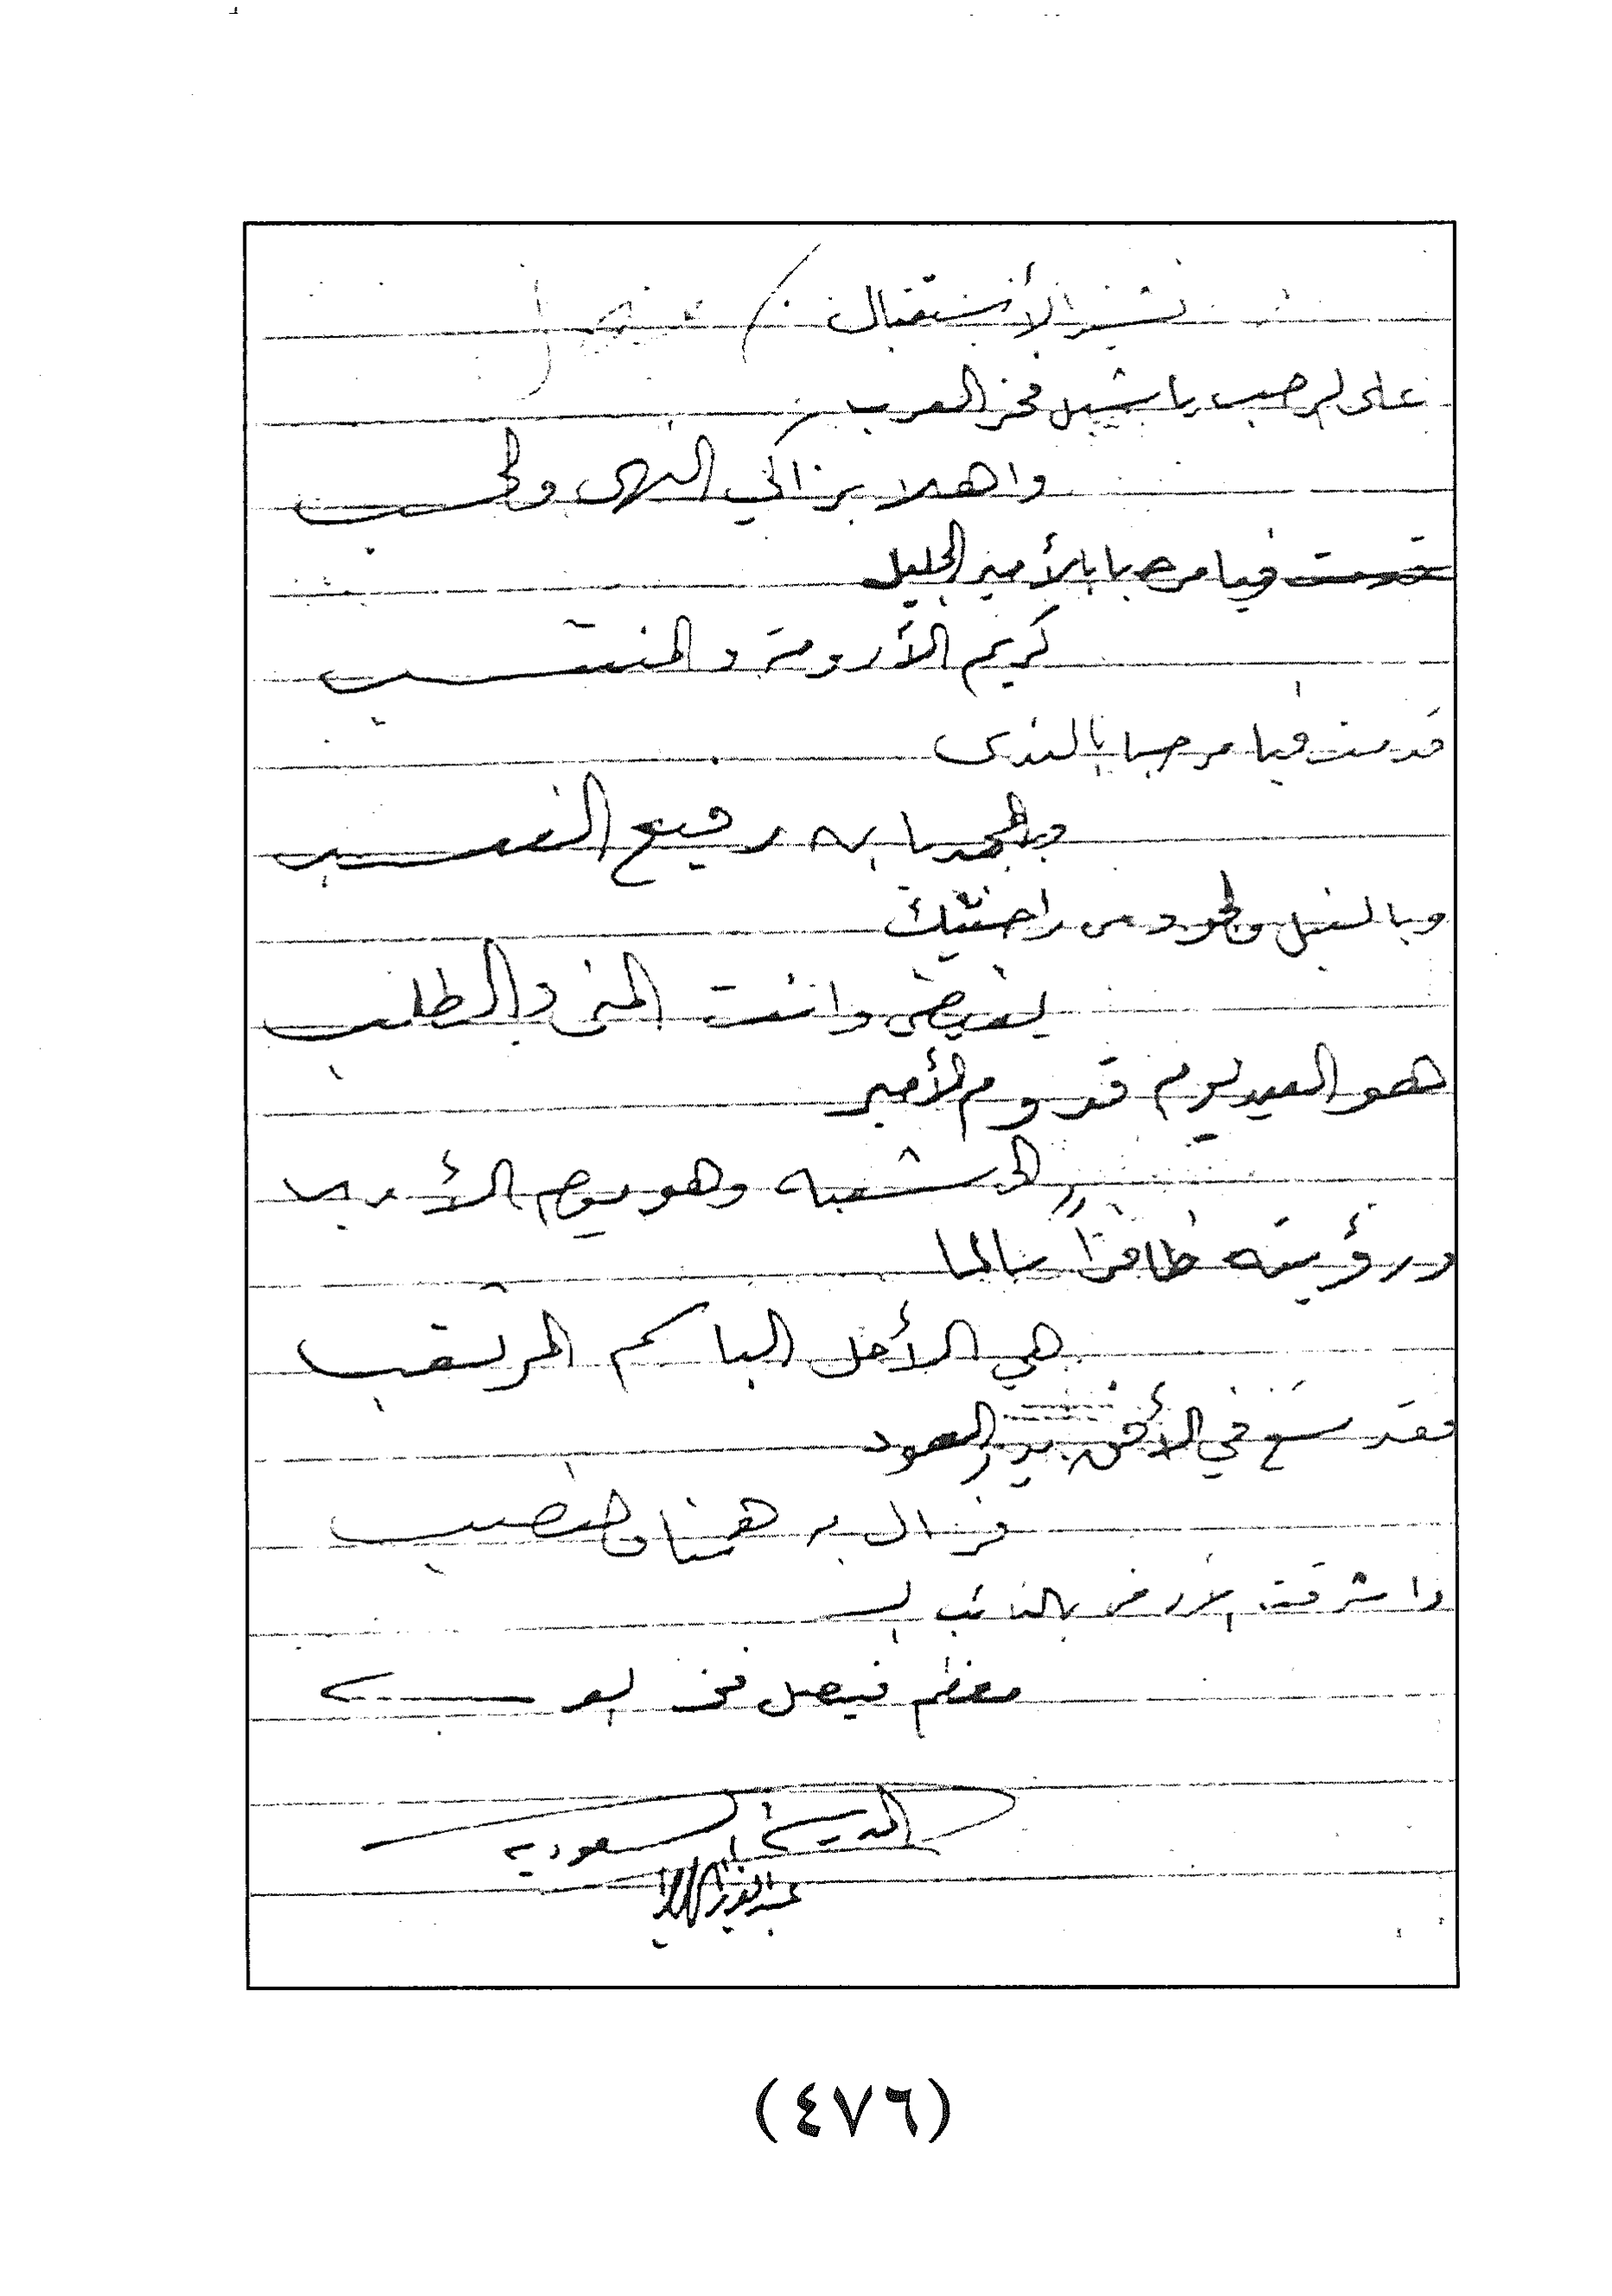 نشيد الأستقبال /
على الرحب يا شبل فخر العرب
واهلا بزاكي النهى والحسب
قدمت فيا مرحبا بالأمير الجليل
كريم الأرومة والمنتسب
قدمت فيا مرحبا بالندى
وبالمجد يا به رفيع النسب
وبالنبل والجود من راحتيك
يفيض وانت المنى والطلب
هو العيد يوم قدوم الأمير
الى شعبه وهو يوم الأرب
ورؤيته ظافراً سالما
هي الأمل الباسم المرتقب
فقد سع في الأفق بدر السعود
فزال به همنا والنصب
واشرقت الأرض بالنائب الـ
معظم فيصل فخر العرب
المدينة السعودية